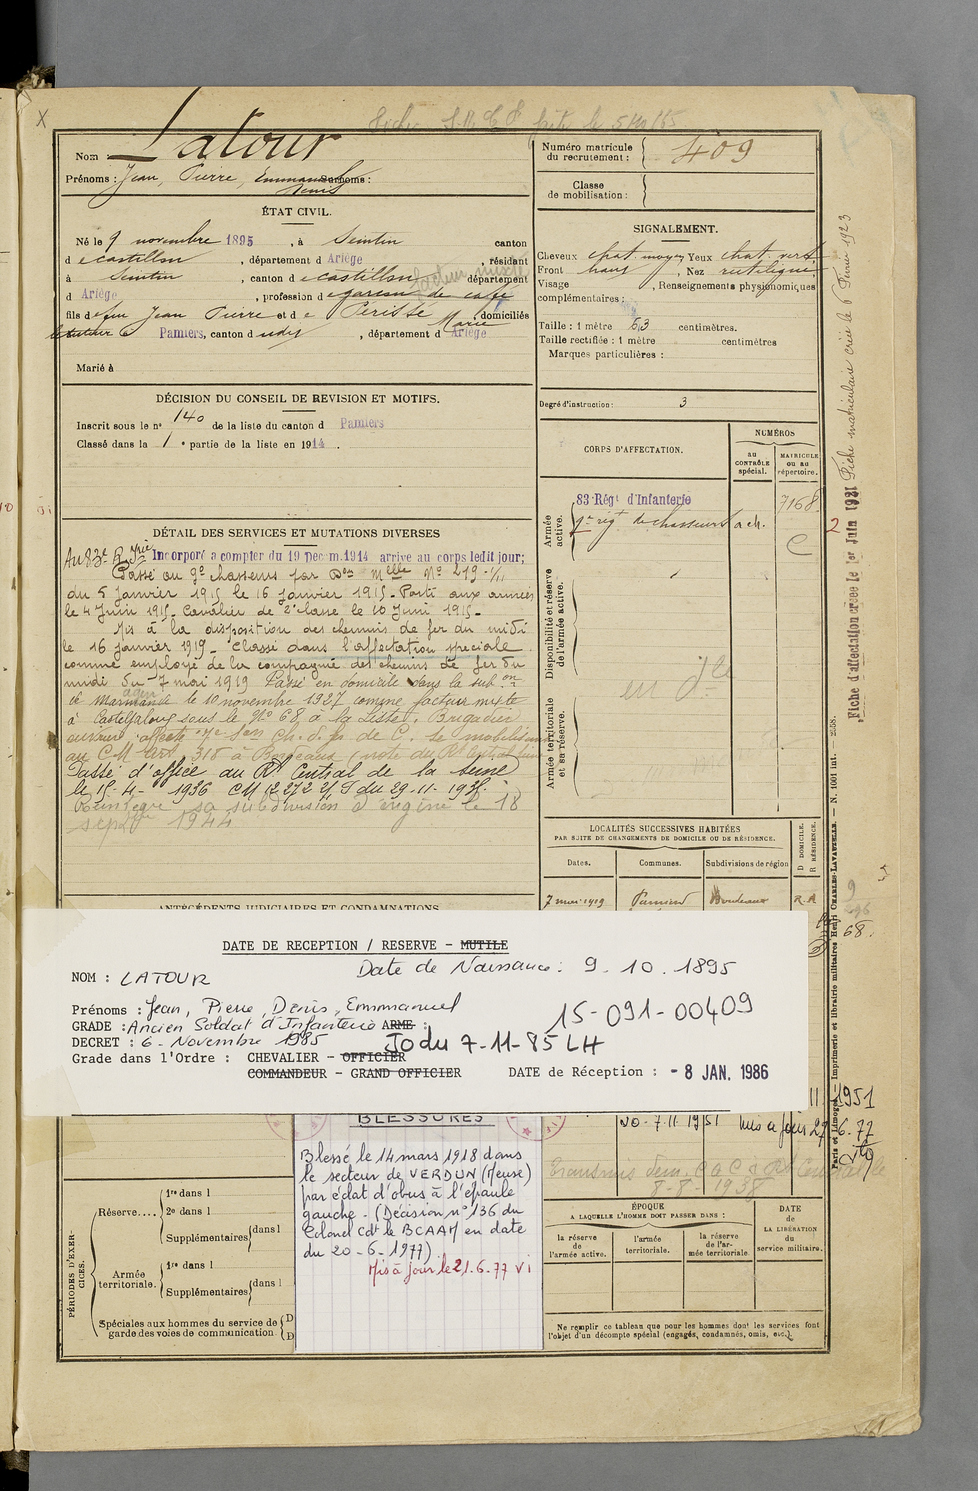 X
Latour
Nom
Prénoms : Jean, Pierre, Emmanuel Surnoms :
Denis
ÉTAT CIVIL.
Né le 9 novembre 1895, à Sentin canton
d e Castillon, département d Ariège, résidant
à Sentin, canton d e Castillon département
facteur mixte
d Ariège, profession d e garçon de café
fils d e feu Jean Pierre et d e Périssé Marie, domiciliés
Pamiers, canton d udit, département d Ariège
Marié à
DÉCISION DU CONSEIL DE REVISION ET MOTIFS.
Inscrit sous le n° 140 de la liste du canton d Pamiers
Classé dans la 1e partie de la liste en 1914.
DÉTAIL DES SERVICES ET MUTATIONS DIVERSES
Au 83e R. Yrie Incorporé à compter du 19 Décem. 1914 arrivé au corps ledit jour;
Passé au 9e chasseurs par Don Melle No 219-1/11
du 5 janvier 1915 le 16 janvier 1915. Parti aux armées
le 4 Juin 1915. Cavalier de 2e classe le 10 Juin 1915.
Mis à la disposition des chemins de fer du midi
le 16 janvier 1919. Classé dans l'affectation spéciale
comme employé de la compagnie des chemins de fer du
midi du 7 mai 1919 Passé en domicile dans la subon
de Marmande le 10 novembre 1927 comme facteur mixte
à Casteljaloux sous le No 68 à la Liste. Brigadier
au CM Art. 318 à Bordeaux (note du Rt Central
Passé d'office au Rt Central de la Seine
le 15-4-1936 CM 12272 2/S du 29-11-1935.
Réintègre sa subdivision d'origine le 18
septbre 1944
ANTÉCÉDENTS JUDICIAIRES ET CONDAMNATIONS.
Numéro matricule
du recrutement : 409
Classe
de mobilisation :
SIGNALEMENT.
Cheveux chat. moyen Yeux chat. vert
Front haut, Nez rectiligne
Visage, Renseignements physionomiques
complémentaires :
Taille : 1 mètre 63 centimètres.
Taille rectifiée : 1 mètre centimètres
Marques particulières :
Degré d'instruction : 3
CORPS D'AFFECTATION.
NUMÉROS
AU
CONTRÔLE
spécial.
MATRICULE
ou au
répertoire.
Armée
active.
83 Régt d'Infanterie
7168
9e rég. de chasseurs à ch.
C
2
Disponibilité et réserve
de l'armée active.
Armée territoriale
et sa réserve.
Fiche matriculaire créée le 6 Février 1923
Fiche d'affectation créée le 1er Juin 1931
LOCALITÉS SUCCESSIVES HABITÉES
PAR SUITE DE CHANGEMENTS DE DOMICILE OU DE RÉSIDENCE.
Dates.
Communes.
Subdivisions de région
D DOMICILE.
R RÉSIDENCE.
7 mai 1919 Pamiers Bordeaux R.A
68.
Paris et Limoges. — Imprimerie et librairie militaires Henri CHARLES-LAVAUZELLE. — N. 1001 int. — 2558.
DATE DE RECEPTION / RESERVE - MUTILE
NOM : LATOUR Date de Naissance : 9.10.1895
Prénoms : Jean, Pierre, Denis, Emmanuel
15-091-00409
GRADE : Ancien Soldat d'Infanterie ARME :
DECRET : 6 - Novembre 1985 JO du 7-11-85 LH
Grade dans l'Ordre : CHEVALIER - OFFICIER
COMMANDEUR - GRAND OFFICIER DATE de Réception : - 8 JAN. 1986
BLESSURES
Blessé le 14 mars 1918 dans
le secteur de VERDUN (Meuse)
par éclat d'obus à l'épaule
gauche - (Décision n° 136 du
Colonel Cdt le BCAAM en date
du 20-6-1977)
Mis à jour le 21.6.77 Vi
11.1951
20-7.11.1951 Mis à jour 27-6.77
8-8-1938
PÉRIODES D'EXERCICES.
Réserve....
1re dans l
2e dans l
Supplémentaires
dans l
Armée
territoriale.
1re dans l
Supplémentaires
dans l
Spéciales aux hommes du service de
garde des voies de communication.
D
D
ÉPOQUE
A LAQUELLE L'HOMME DOIT PASSER DANS :
la réserve
de
l'armée active.
l'armée
territoriale.
la réserve
de l'ar-
mée territoriale.
DATE
de
LA LIBÉRATION
du
service militaire.
Ne remplir ce tableau que pour les hommes dont les services font
l'objet d'un décompte spécial (engagés, condamnés, omis, etc.).